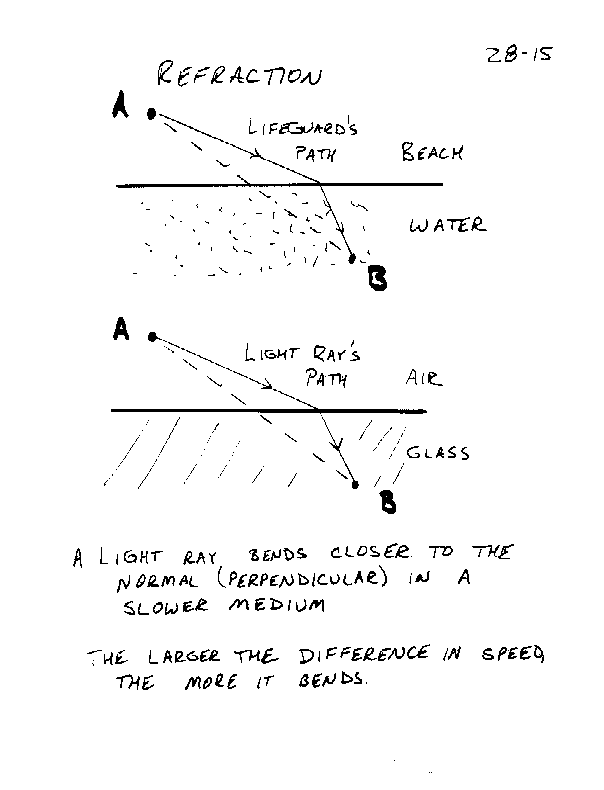 28-15
REFRACTION
A
LIFEGUARD'S
PATH
BEACH
WATER
B
A
LIGHT RAY'S
PATH
AIR
GLASS
B
A LIGHT RAY BENDS CLOSER TO THE
NORMAL (PERPENDICULAR) IN A
SLOWER MEDIUM
THE LARGER THE DIFFERENCE IN SPEED,
THE MORE IT BENDS.